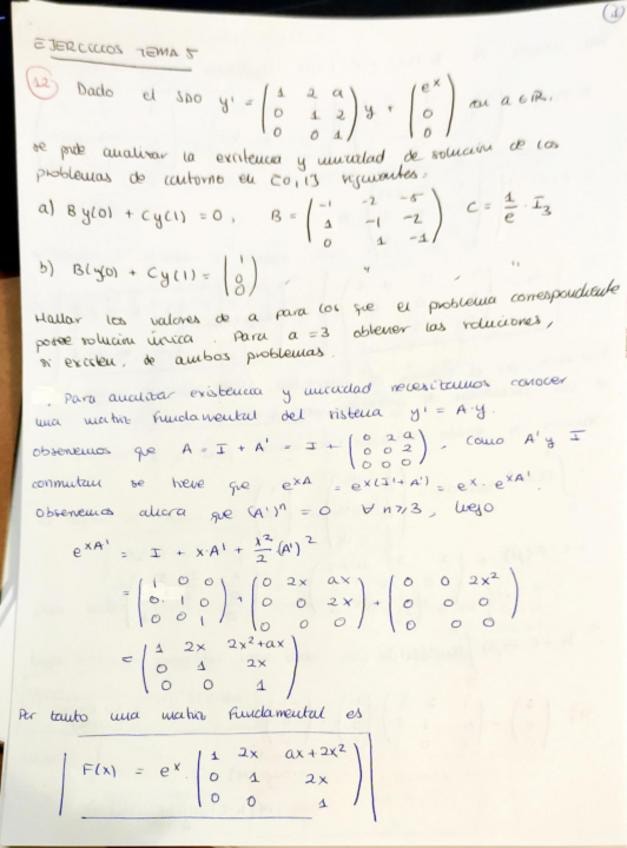 (1)
EJERCICIOS TEMA 5
12 Dado el SDO y' = ( 1 2 a ; 0 1 2 ; 0 0 1 ) y + ( e^x ; 0 ; 0 ) con a ∈ ℝ.
se pide analizar la existencia y unicidad de solución de los
problemas de contorno en [0,1] siguientes:
a) By(0) + Cy(1) = 0, B = ( -1 -2 -5 ; 1 -1 -2 ; 0 1 -1 ) C = 1/e · I₃
b) B(y(0) + Cy(1) = ( 1 ; 0 ; 0 ) " "
Hallar los valores de a para los que el problema correspondiente
posee solución única. Para a = 3 obtener las soluciones,
si existen, de ambos problemas.
. Para analizar existencia y unicidad necesitamos conocer
una matriz fundamental del sistema y' = A·y.
Observemos que A = I + A' = I + ( 0 2 a ; 0 0 2 ; 0 0 0 ). Como A' y I
conmutan se tiene que e^{xA} = e^{x(I+A')} = e^x · e^{xA'}.
Observemos ahora que (A')^n = 0 ∀ n ≥ 3, luego
e^{xA'} = I + x·A' + x²/2 (A')²
= ( 1 0 0 ; 0 1 0 ; 0 0 1 ) + ( 0 2x ax ; 0 0 2x ; 0 0 0 ) + ( 0 0 2x² ; 0 0 0 ; 0 0 0 )
= ( 1 2x 2x²+ax ; 0 1 2x ; 0 0 1 )
Por tanto una matriz fundamental es
F(x) = e^x · ( 1 2x ax+2x² ; 0 1 2x ; 0 0 1 )